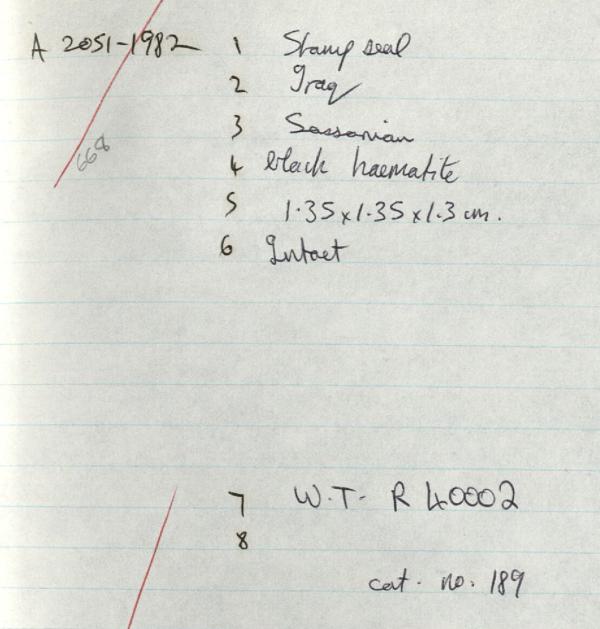 A 2051-1982 1 Stamp seal
2 Iraq
3 Sassanian
668
4 black haematite
5 1.35 x 1.35 x 1.3 cm.
6 Intact
7 W.T- R 40002
8
cat. no. 189